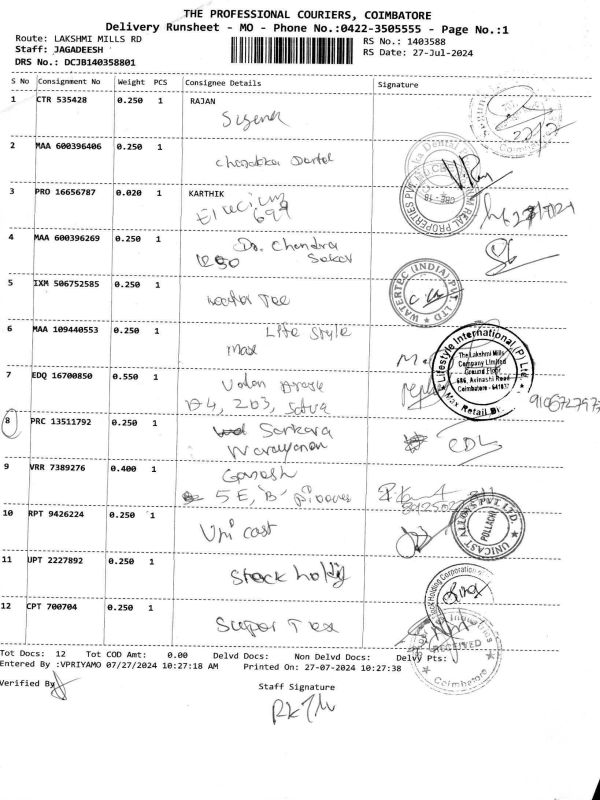 THE PROFESSIONAL COURIERS, COIMBATORE
Delivery Runsheet - MO - Phone No.:0422-3505555 - Page No.:1
Route: LAKSHMI MILLS RD
RS No.: 1403588
Staff: JAGADEESH
RS Date: 27-Jul-2024
DRS No.: DCJB140358801
S No Consignment No Weight PCS Consignee Details Signature
1 CTR 535428 0.250 1 RAJAN
2 MAA 600396406 0.250 1
Dental
3 PRO 16656787 0.020 1 KARTHIK
697
4 MAA 600396269 0.250 1 Dr. Chandra
Sekar
5 IXM 506752585 0.250 1
WATERTEC (INDIA) PVT. LTD
Tec
6 MAA 109440553 0.250 1 Life Style
max
Lifestyle International (P) Ltd.
The Lakshmi Mills
Company Limited
Ground Floor
686, Avinashi Road
Coimbatore - 641037
Max Retail Di
7 EDQ 16700850 0.550 1
A4, 203,
8 PRC 13511792 0.250 1 Sankara
Narayanan
9 VRR 7389276 0.400 1 Ganesh
5 E, 'B'
10 RPT 9426224 0.250 1
Uni cast
UNICAST ALLOYS PVT. LTD.
POLLACHI
11 UPT 2227892 0.250 1
Stock holdig
Stock Holding Corporation
12 CPT 700704 0.250 1
Super Tex
RECEIVED
Coimbatore
Tot Docs: 12 Tot COD Amt: 0.00 Delvd Docs: Non Delvd Docs: Delvy Pts:
Entered By :VPRIYAMO 07/27/2024 10:27:18 AM Printed On: 27-07-2024 10:27:38
Verified By
Staff Signature